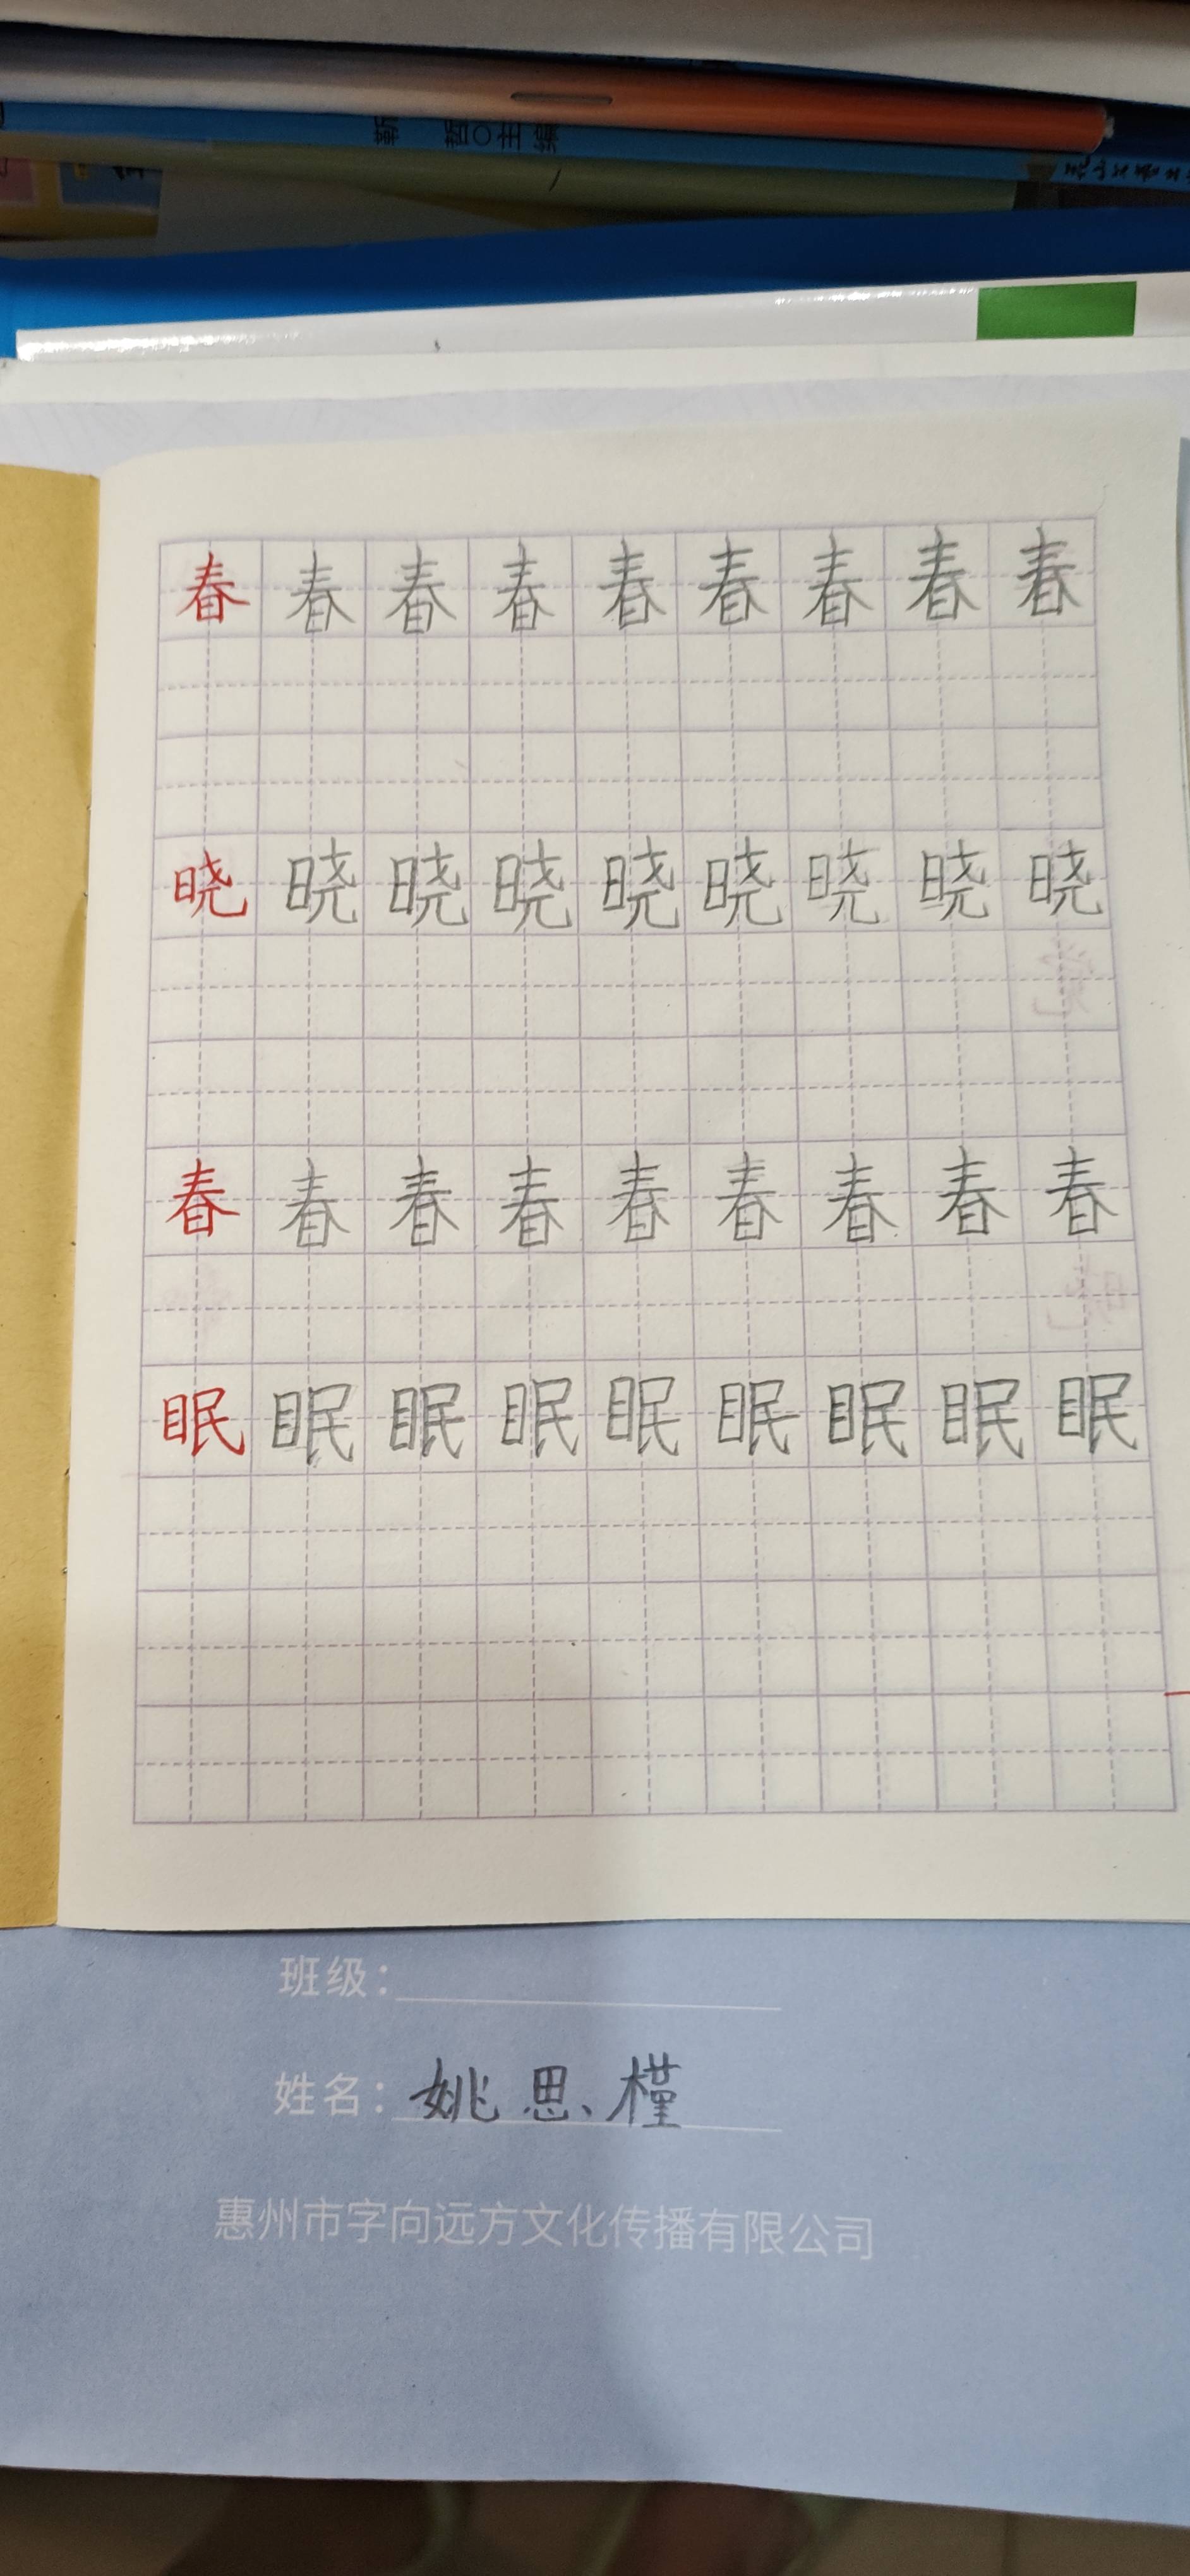 哲○主编
春春春春春春春春春
晓晓晓晓晓晓晓晓晓
春春春春春春春春春
眠眠眠眠眠眠眠眠眠
班级：
姓名：姚思槿
惠州市字向远方文化传播有限公司